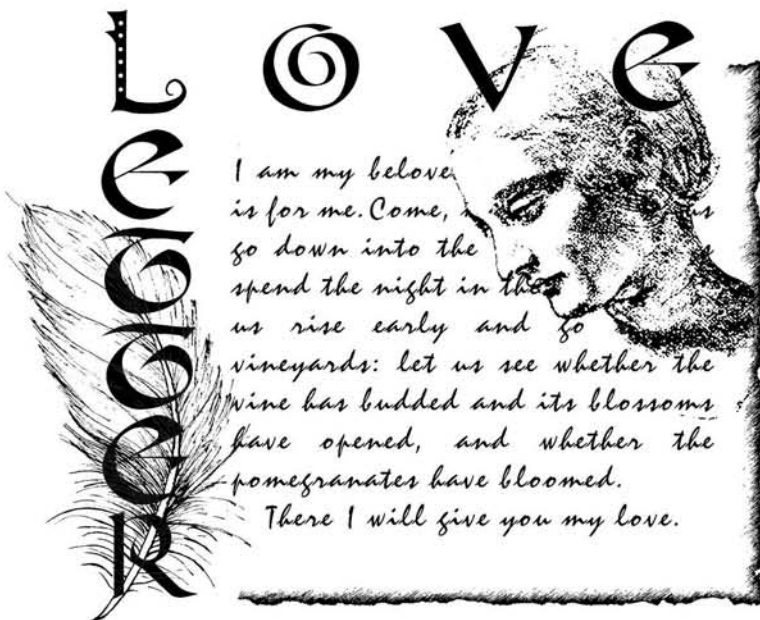 LOVE
LETTER
I am my belove
is for me. Come,
go down into the
spend the night in the
us rise early and go
vineyards: let us see whether the
vine has budded and its blossoms
have opened, and whether the
pomegranates have bloomed.
There I will give you my love.